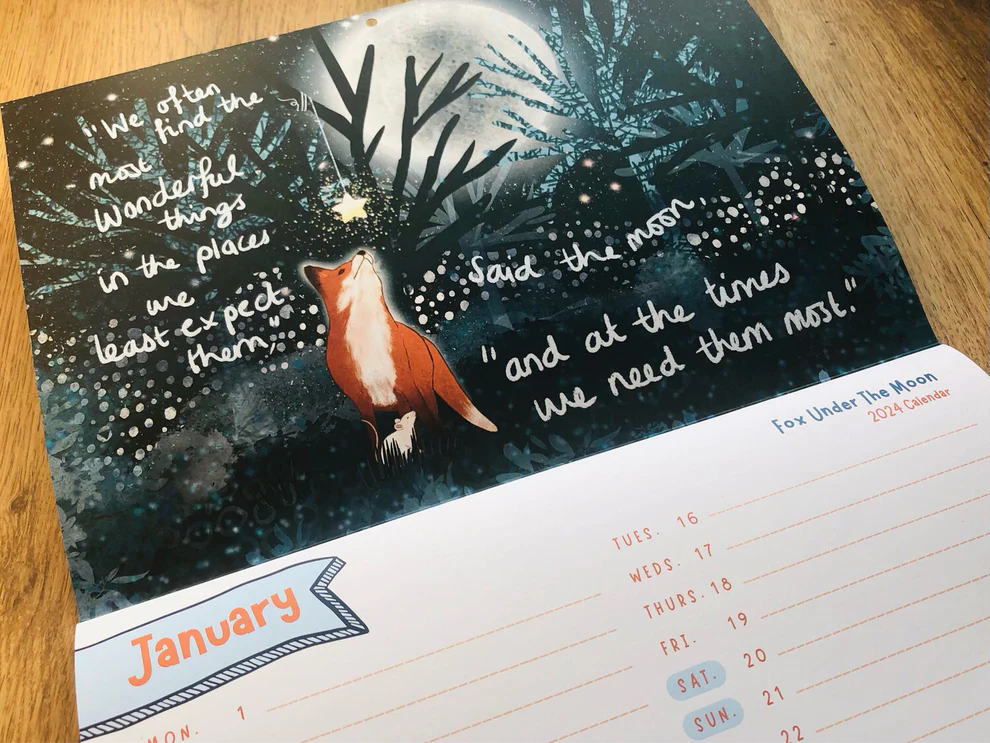 "We often
find the
most
Wonderful
things
in the places
we
least expect
them,"
Said the moon,
"and at the times
we need them most."
Fox Under The Moon
2024 Calendar
January
MON. 1
TUES. 16
WEDS. 17
THURS. 18
FRI. 19
SAT. 20
SUN. 21
22